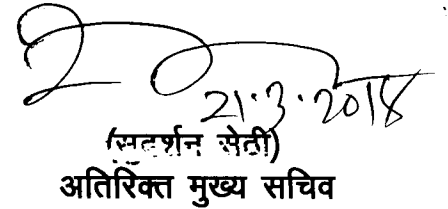 21.3.2014
(सुदर्शन सेठी)
अतिरिक्त मुख्य सचिव